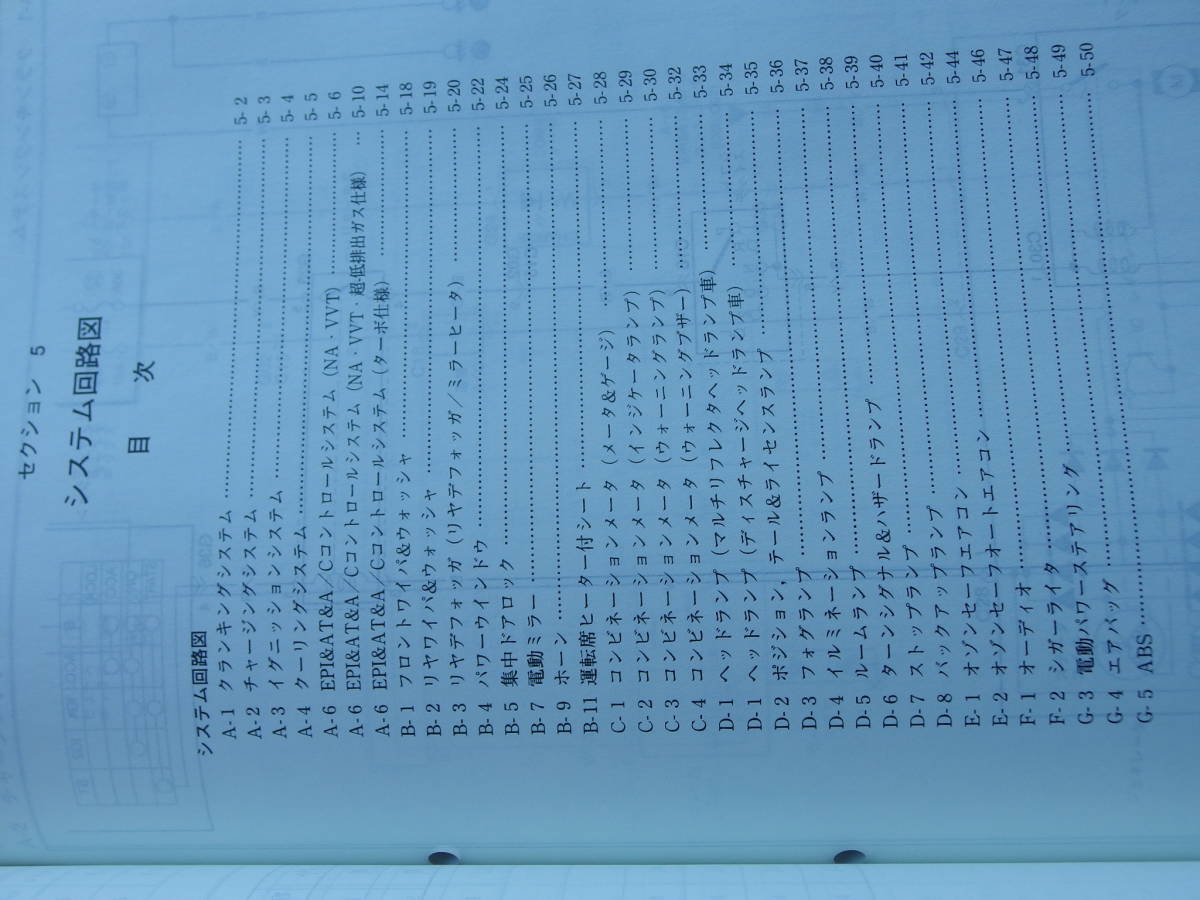 セクション 5
システム回路図
目 次
システム回路図
A-1 クランキングシステム …… 5-2
A-2 チャージングシステム …… 5-3
A-3 イグニッションシステム …… 5-4
A-4 クーリングシステム …… 5-5
A-6 EPI&AT&A/Cコントロールシステム（NA・VVT） …… 5-6
A-6 EPI&AT&A/Cコントロールシステム（NA・VVT 超-低排出ガス仕様） … 5-10
A-6 EPI&AT&A/Cコントロールシステム（ターボ仕様） …… 5-14
B-1 フロントワイパ&ウォッシャ …… 5-18
B-2 リヤワイパ&ウォッシャ …… 5-19
B-3 リヤデフォッガ（リヤデフォッガ/ミラーヒータ） …… 5-20
B-4 パワーウインドウ …… 5-22
B-5 集中ドアロック …… 5-24
B-7 電動ミラー …… 5-25
B-9 ホーン …… 5-26
B-11 運転席ヒーター付シート …… 5-27
C-1 コンビネーションメータ（メータ&ゲージ） …… 5-28
C-2 コンビネーションメータ（インジケータランプ） …… 5-29
C-3 コンビネーションメータ（ウォーニングランプ） …… 5-30
C-4 コンビネーションメータ（ウォーニングブザー） …… 5-32
D-1 ヘッドランプ（マルチリフレクタヘッドランプ車） …… 5-33
D-1 ヘッドランプ（ディスチャージヘッドランプ車） …… 5-34
D-2 ポジション，テール&ライセンスランプ …… 5-35
D-3 フォグランプ …… 5-36
D-4 イルミネーションランプ …… 5-37
D-5 ルームランプ …… 5-38
D-6 ターンシグナル&ハザードランプ …… 5-39
D-7 ストップランプ …… 5-40
D-8 バックアップランプ …… 5-41
E-1 オゾンセーフエアコン …… 5-42
E-2 オゾンセーフオートエアコン …… 5-44
F-1 オーディオ …… 5-46
F-2 シガーライタ …… 5-47
G-3 電動パワーステアリング …… 5-48
G-4 エアバッグ …… 5-49
G-5 ABS …… 5-50